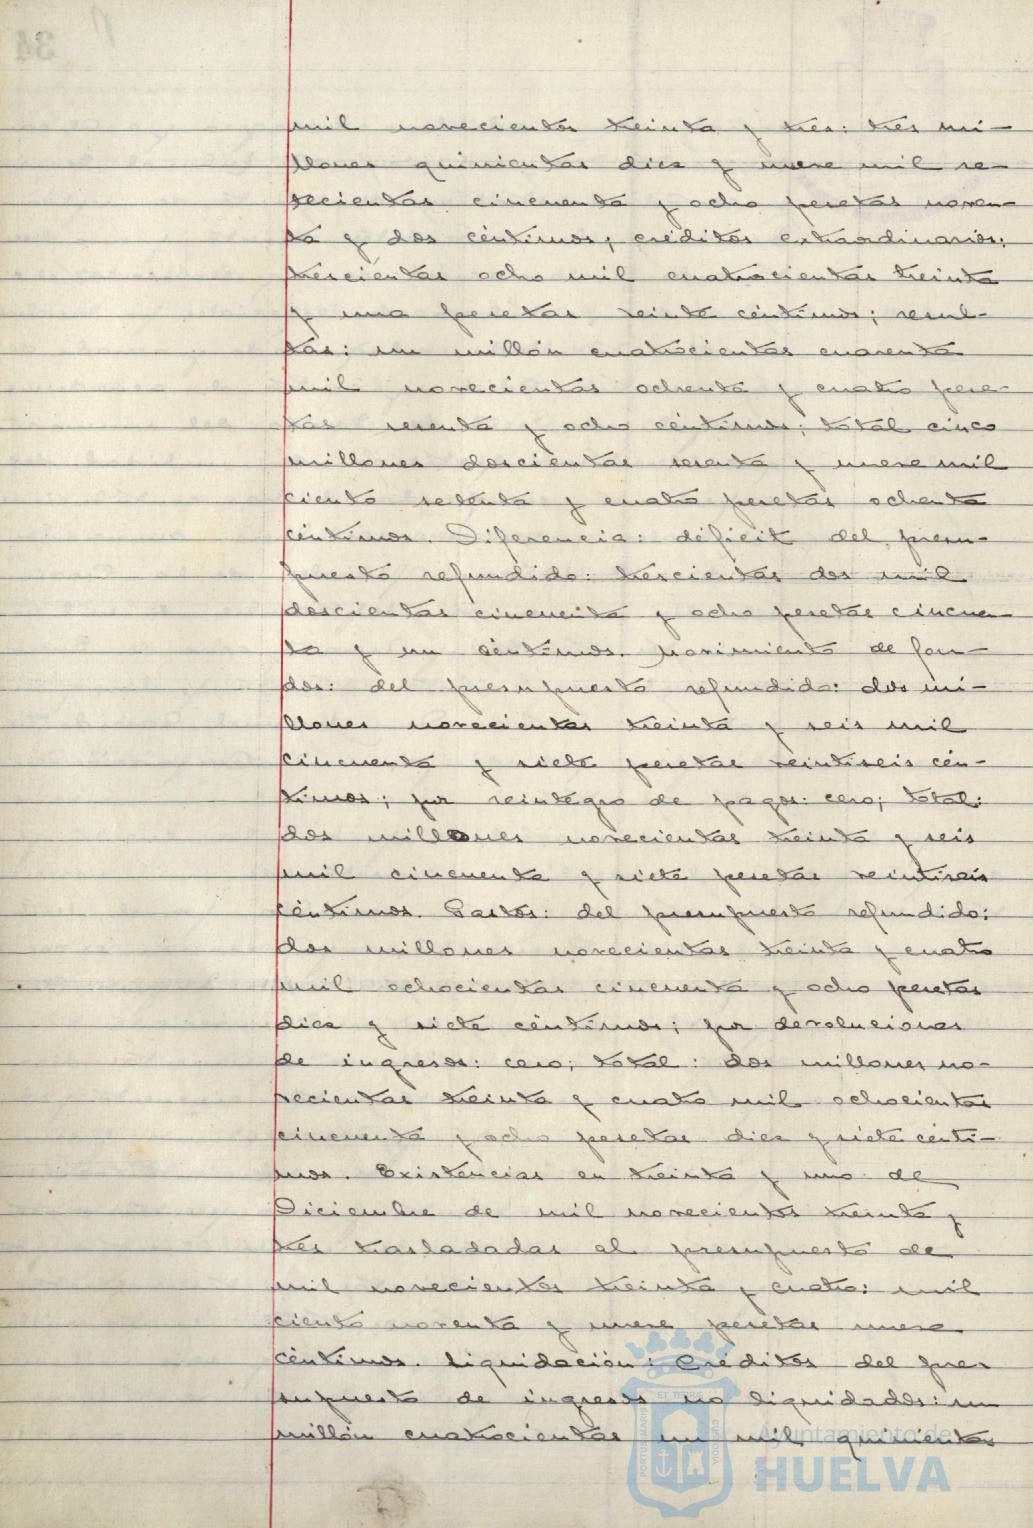 mil novecientos treinta y tres: tres mi-
llones quinientas diez y nueve mil se-
tecientas cincuenta y ocho pesetas noven-
ta y dos céntimos; créditos extraordinarios:
trescientas ocho mil cuatrocientas treinta
y una pesetas veinte céntimos; resul-
tas: un millón cuatrocientas cuarenta
mil novecientas ochenta y cuatro pese-
tas sesenta y ocho céntimos; total cinco
millones doscientas sesenta y nueve mil
ciento setenta y cuatro pesetas ochenta
céntimos. Diferencia: déficit del presu-
puesto refundido: trescientas dos mil
doscientas cincuenta y ocho pesetas cincuen-
ta y un céntimos. Movimiento de fon-
dos: del presupuesto refundido: dos mi-
llones novecientas treinta y seis mil
cincuenta y siete pesetas veintiseis cén-
timos; por reintegro de pagos: cero; total:
dos millones novecientas treinta y seis
mil cincuenta y siete pesetas veintiseis
céntimos. Gastos: del presupuesto refundido:
dos millones novecientas treinta y cuatro
mil ochocientas cincuenta y ocho pesetas
diez y siete céntimos; por devoluciones
de ingresos: cero; total: dos millones no-
vecientas treinta y cuatro mil ochocientas
cincuenta y ocho pesetas diez y siete cénti-
mos. Existencias en treinta y uno de
Diciembre de mil novecientos treinta y
tres trasladadas al presupuesto de
mil novecientos treinta y cuatro: mil
ciento noventa y nueve pesetas nueve
céntimos. Liquidación: Créditos del pre-
supuesto de ingresos no liquidados: un
millón cuatrocientas un mil quinientas
Ayuntamiento de
HUELVA